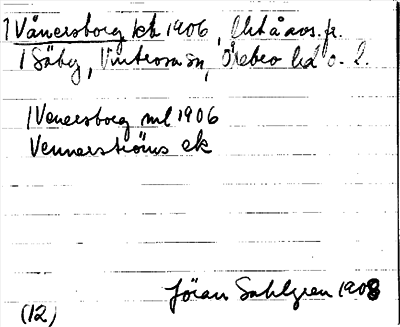 1 Vänersborg kb 1906, Ukt å avs. fr.
1 Säby, Vintrosa sn, Örebro hd o. l.
1 Venersborg ml 1906
Vennerströms ek
Jöran Sahlgren 1908
(12)